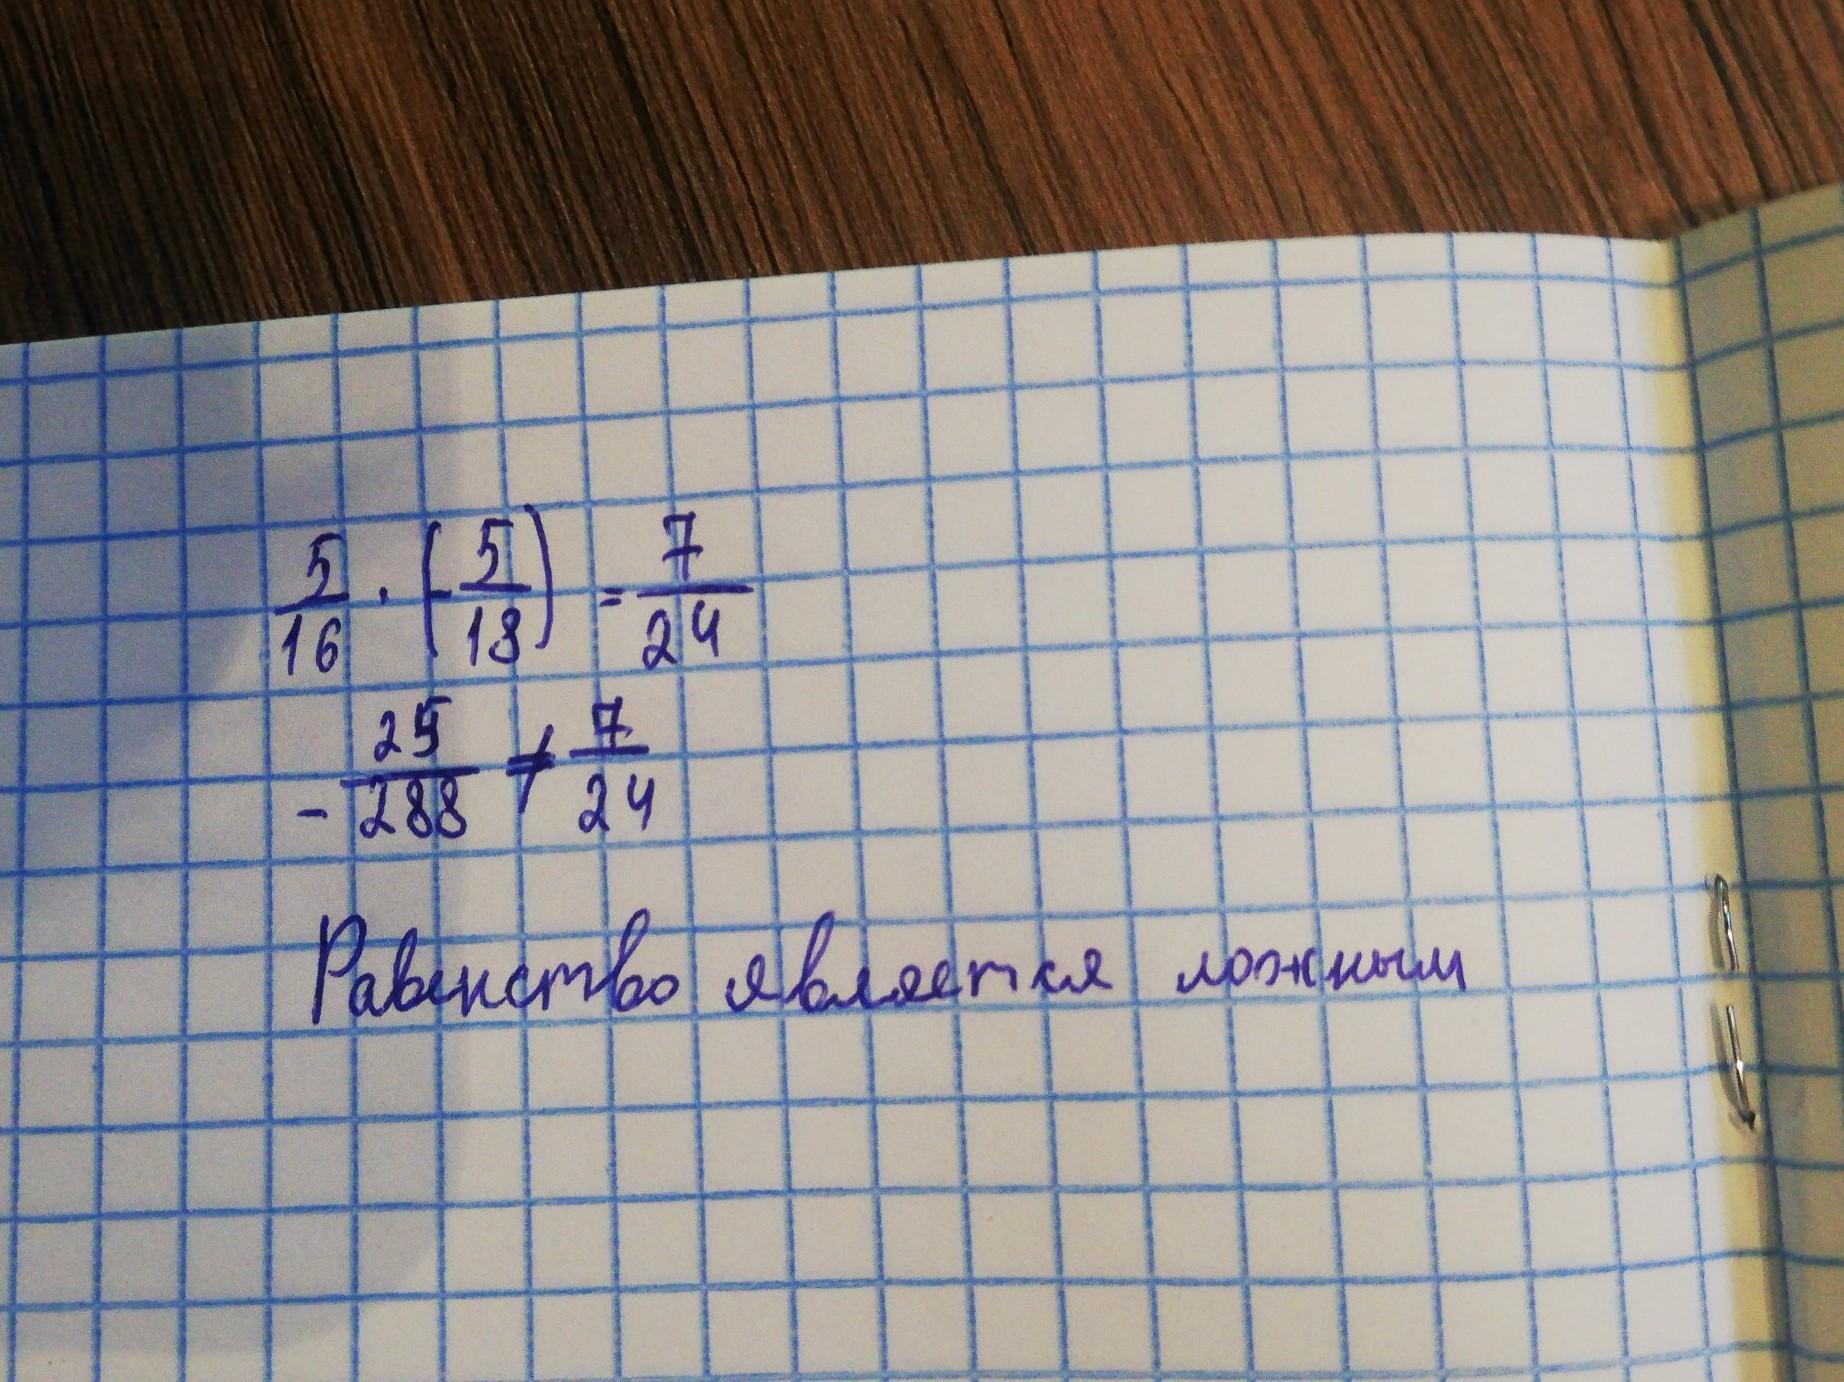 5/16 · (-5/18) = 7/24
- 25/288 ≠ 7/24
Равенство является ложным